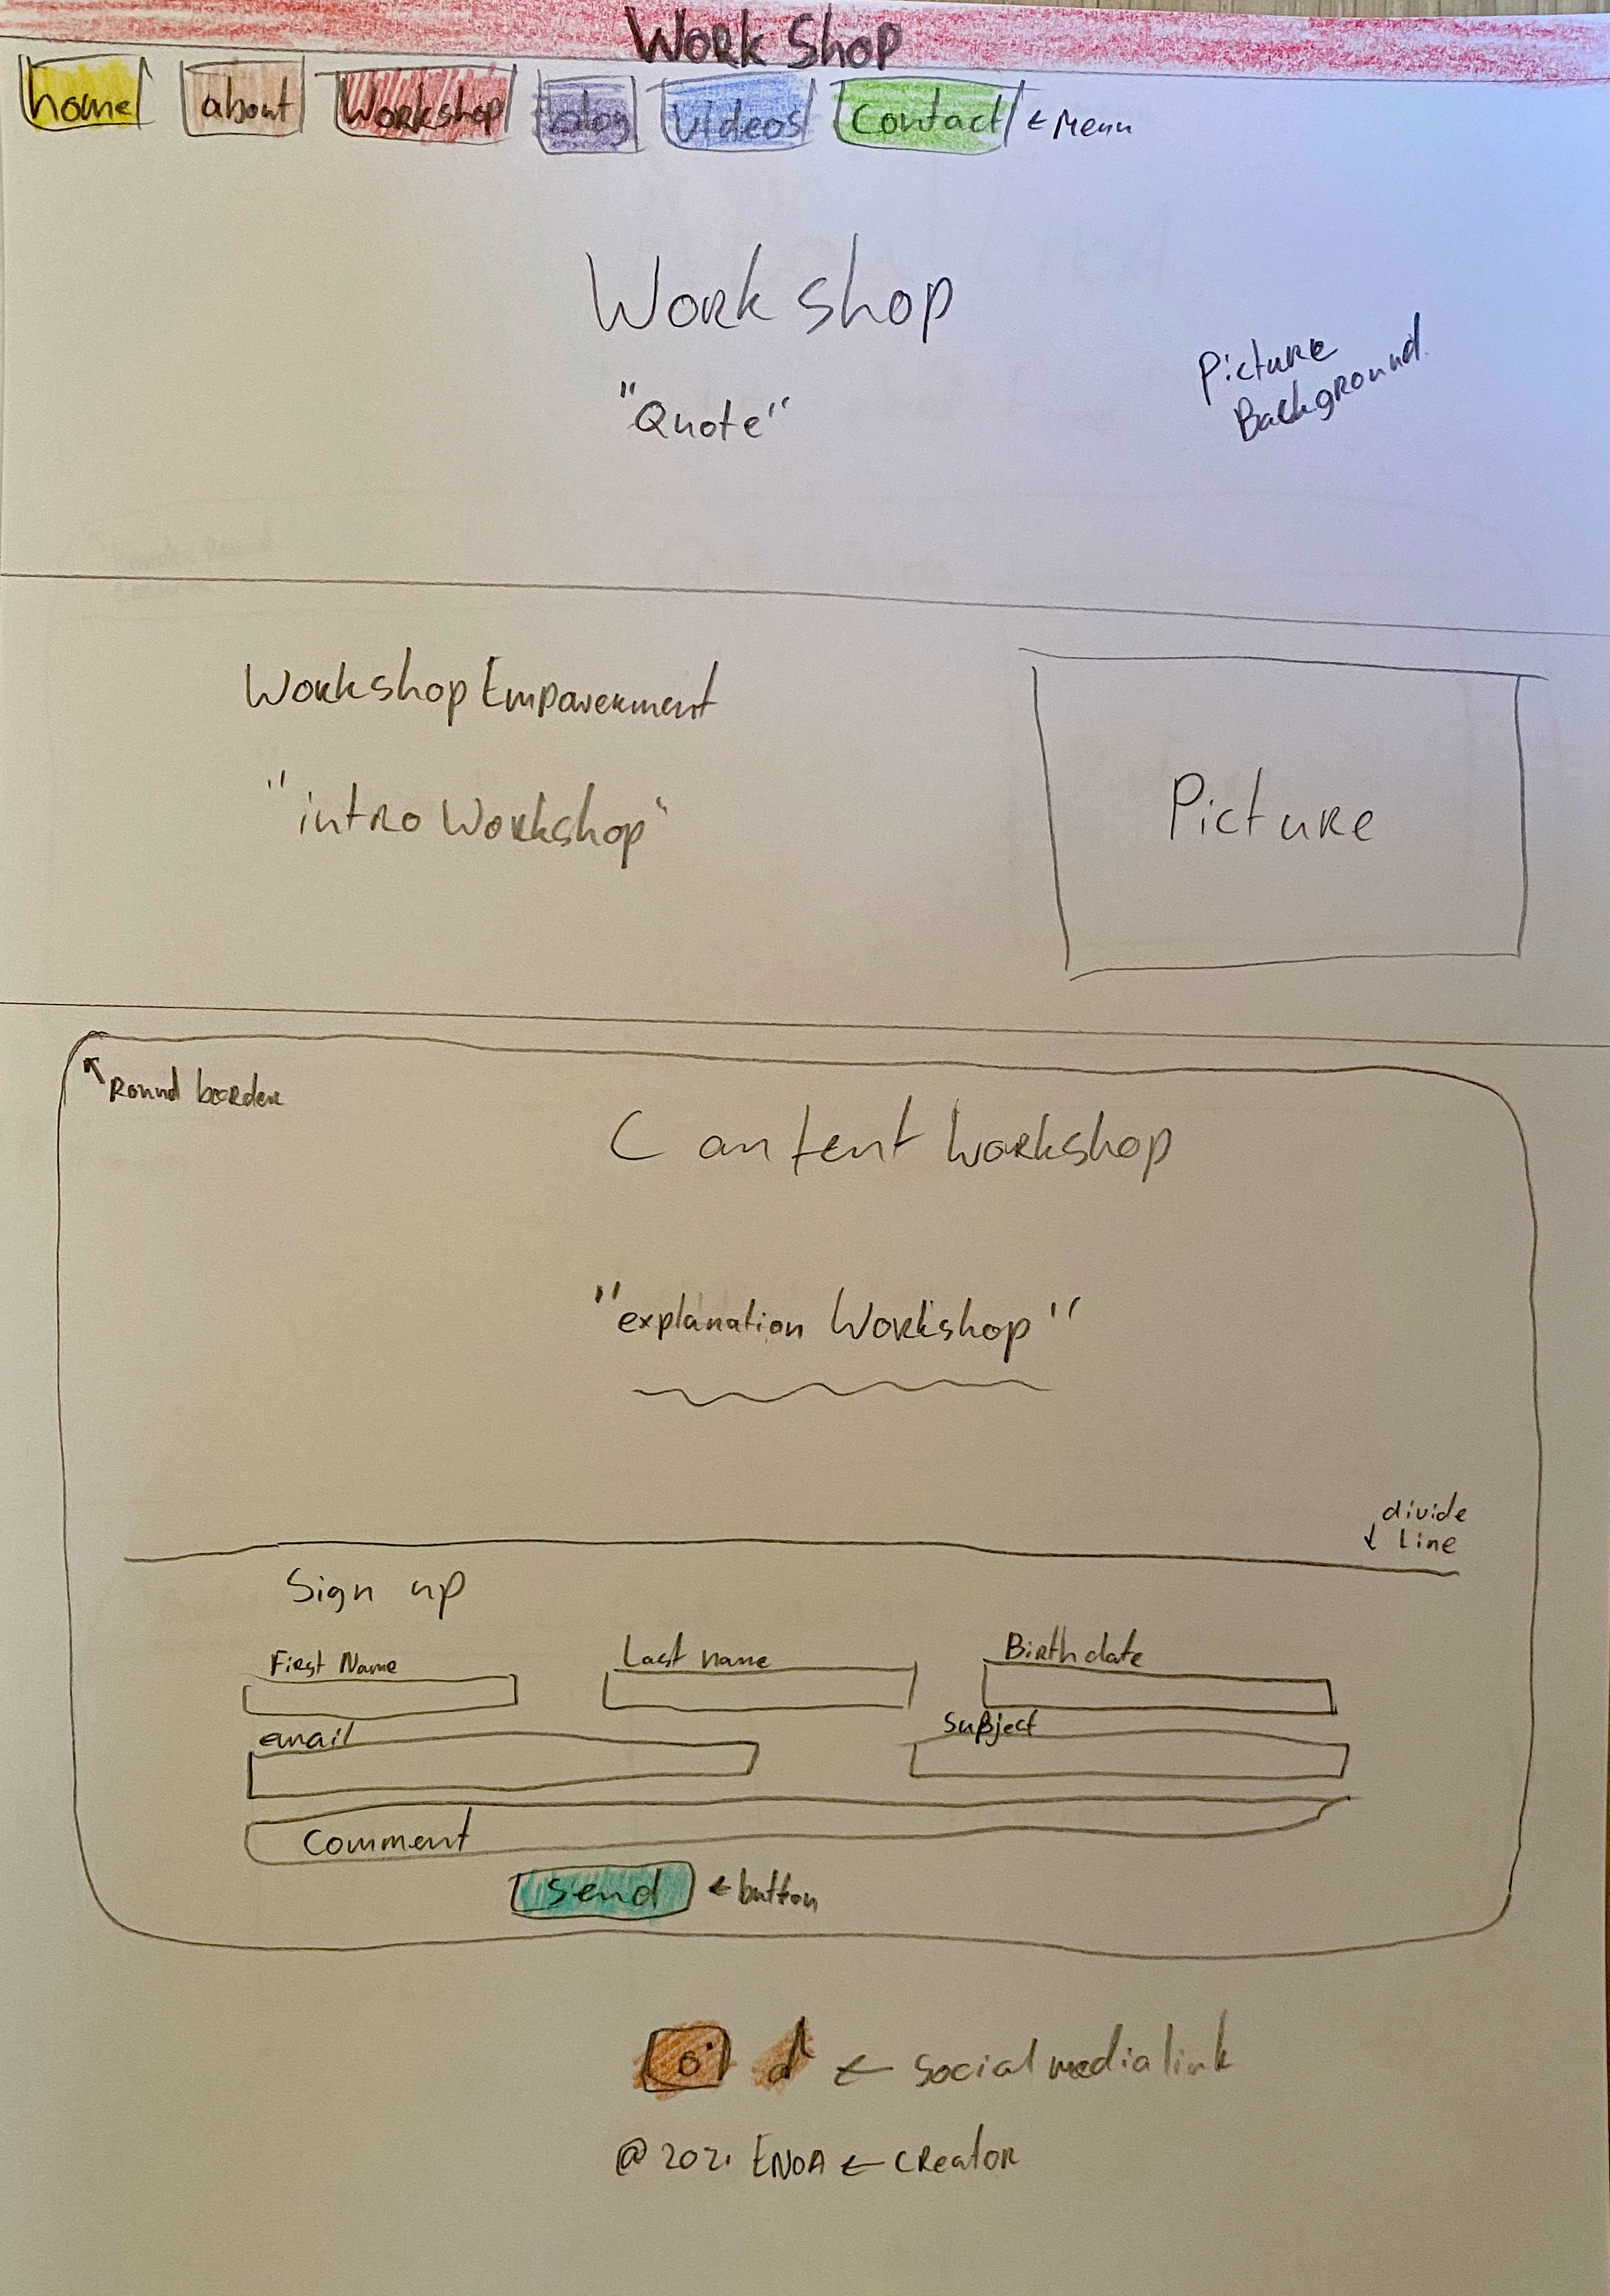 Work Shop
home about Workshop blog videos Contact ← Menu
Work shop
"Quote"
Picture
Background
Workshop Empowerment
"intro Workshop"
Picture
Round boarder
Content Workshop
"explanation Workshop"
divide
↓ Line
Sign up
First Name Last name Birthdate
email Subject
Comment
Send ← button
← social media link
@ 2021 ENOA ← CREATOR